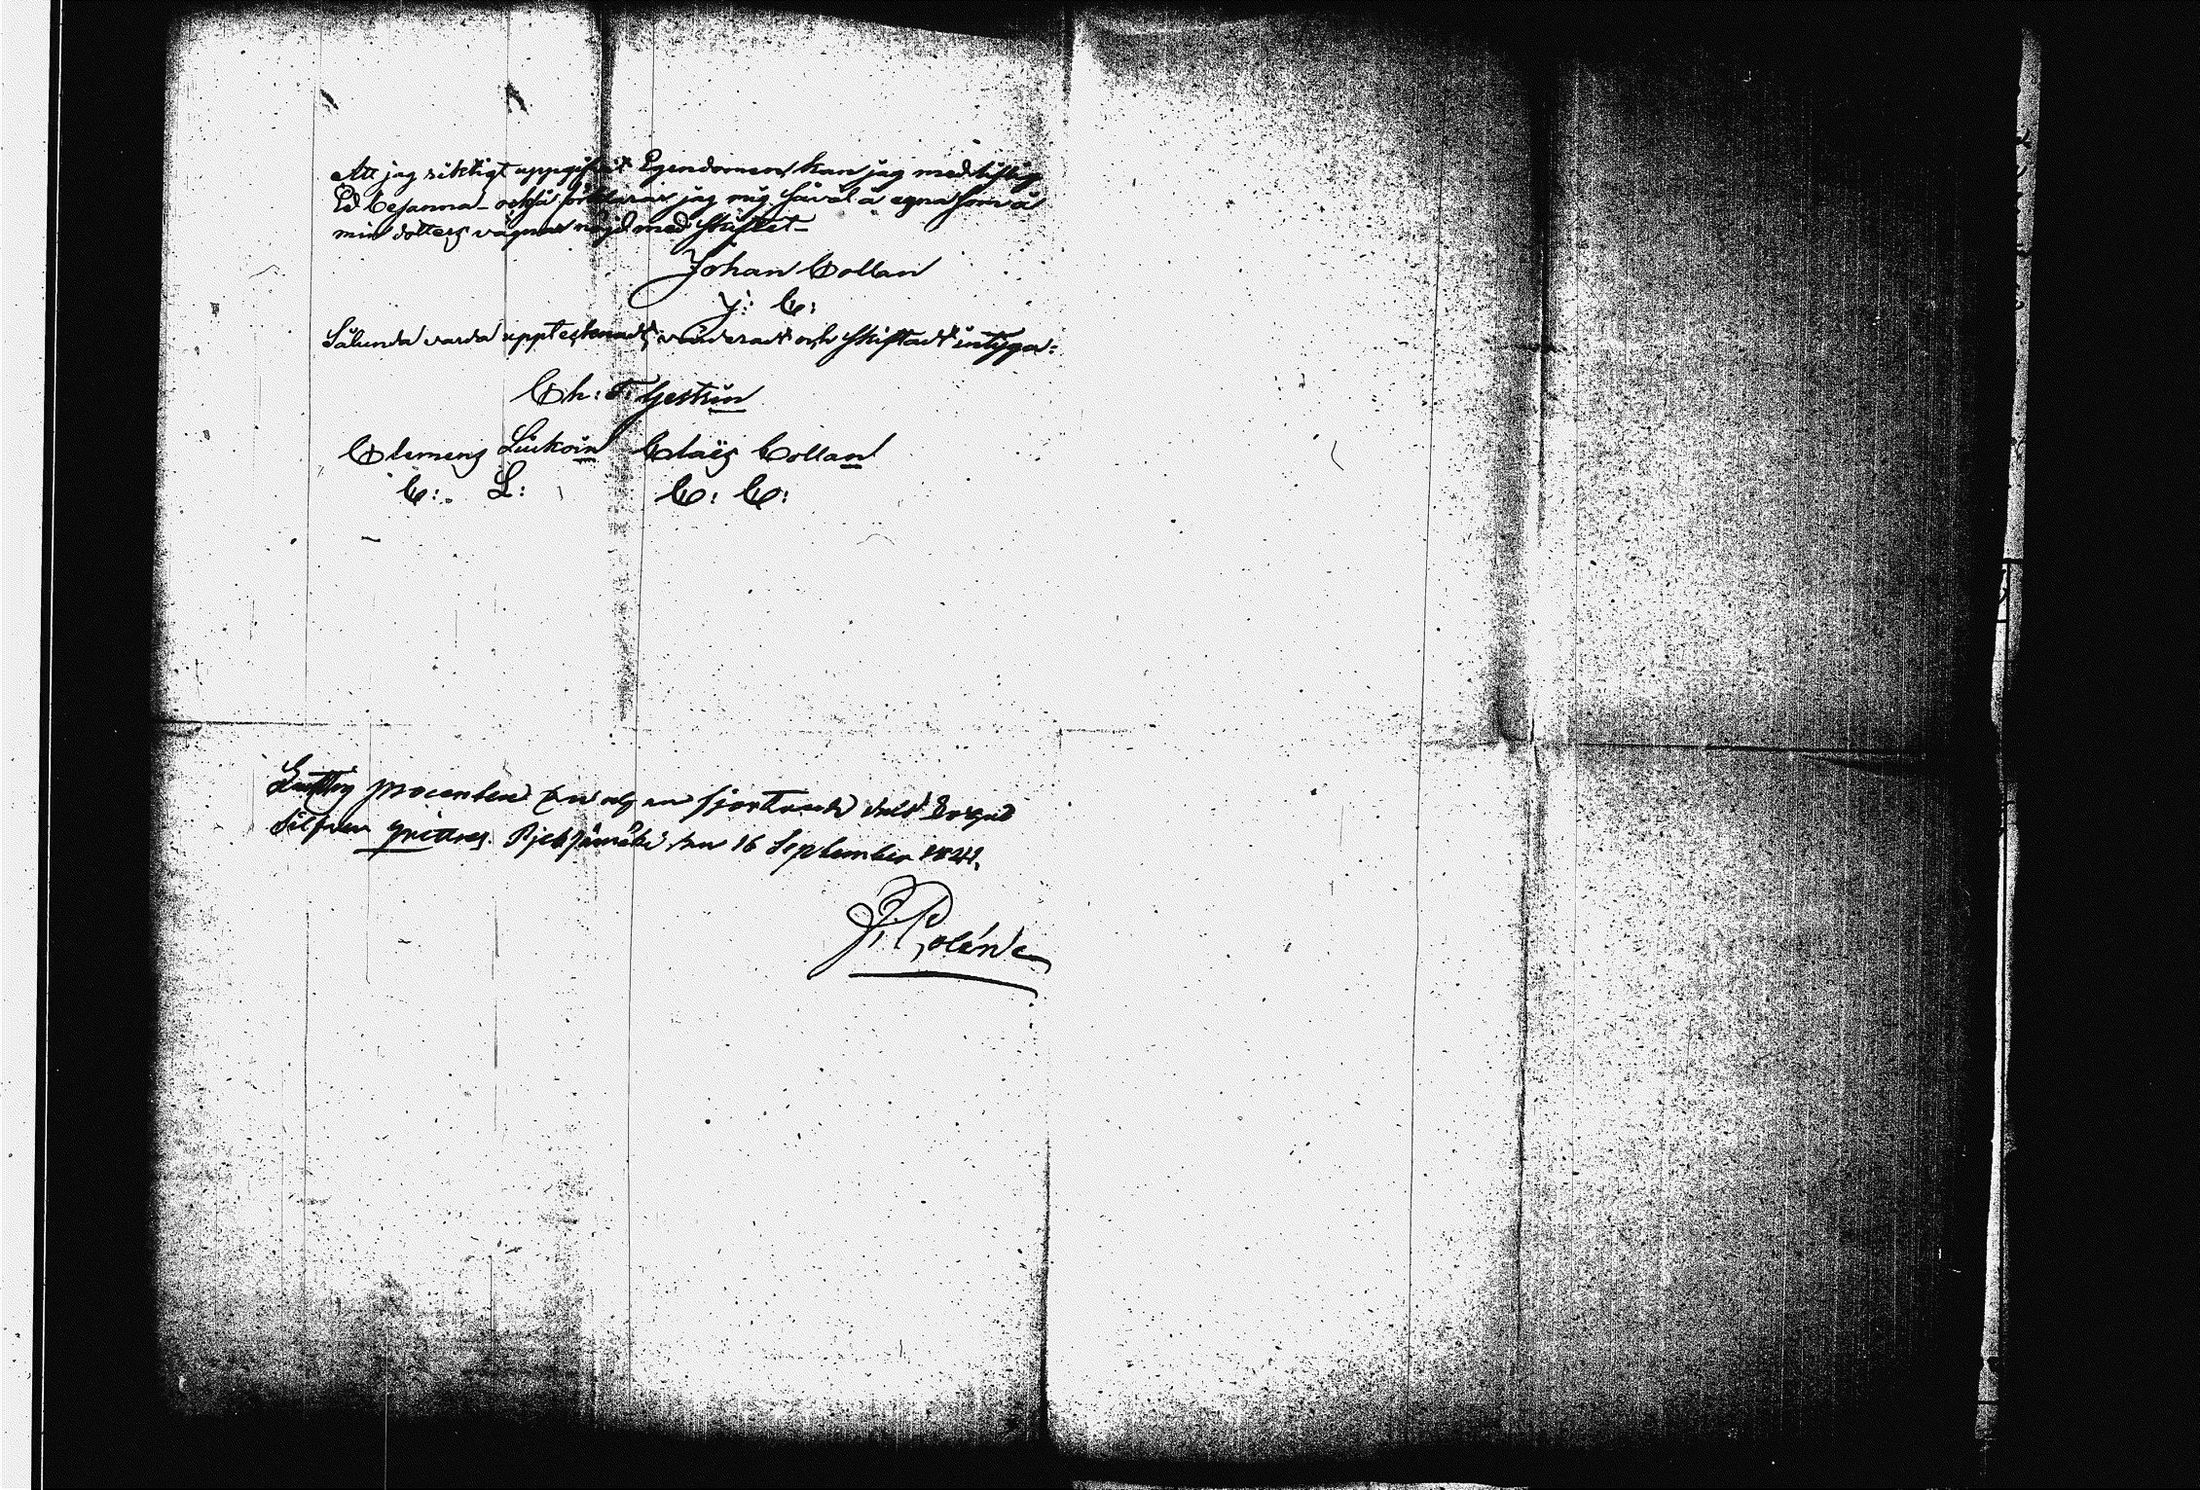 Att jag riktigt uppgifvit Egendomen kan jag med liflig
Ed besanna – också förklarar jag mig såväl å egna som å
min dotters vägnar nöjd med skiftet –
Johan Collan
J: C:
Sålunda varda upptecknadt, värderadt och skiftadt intyga:
Ch: F: Gestrin
Clemens Liukoin Claës Collan
C: L: C: C:
procenten en och en fjerdedels
Silfver qvitteras. den 16 September 1841.